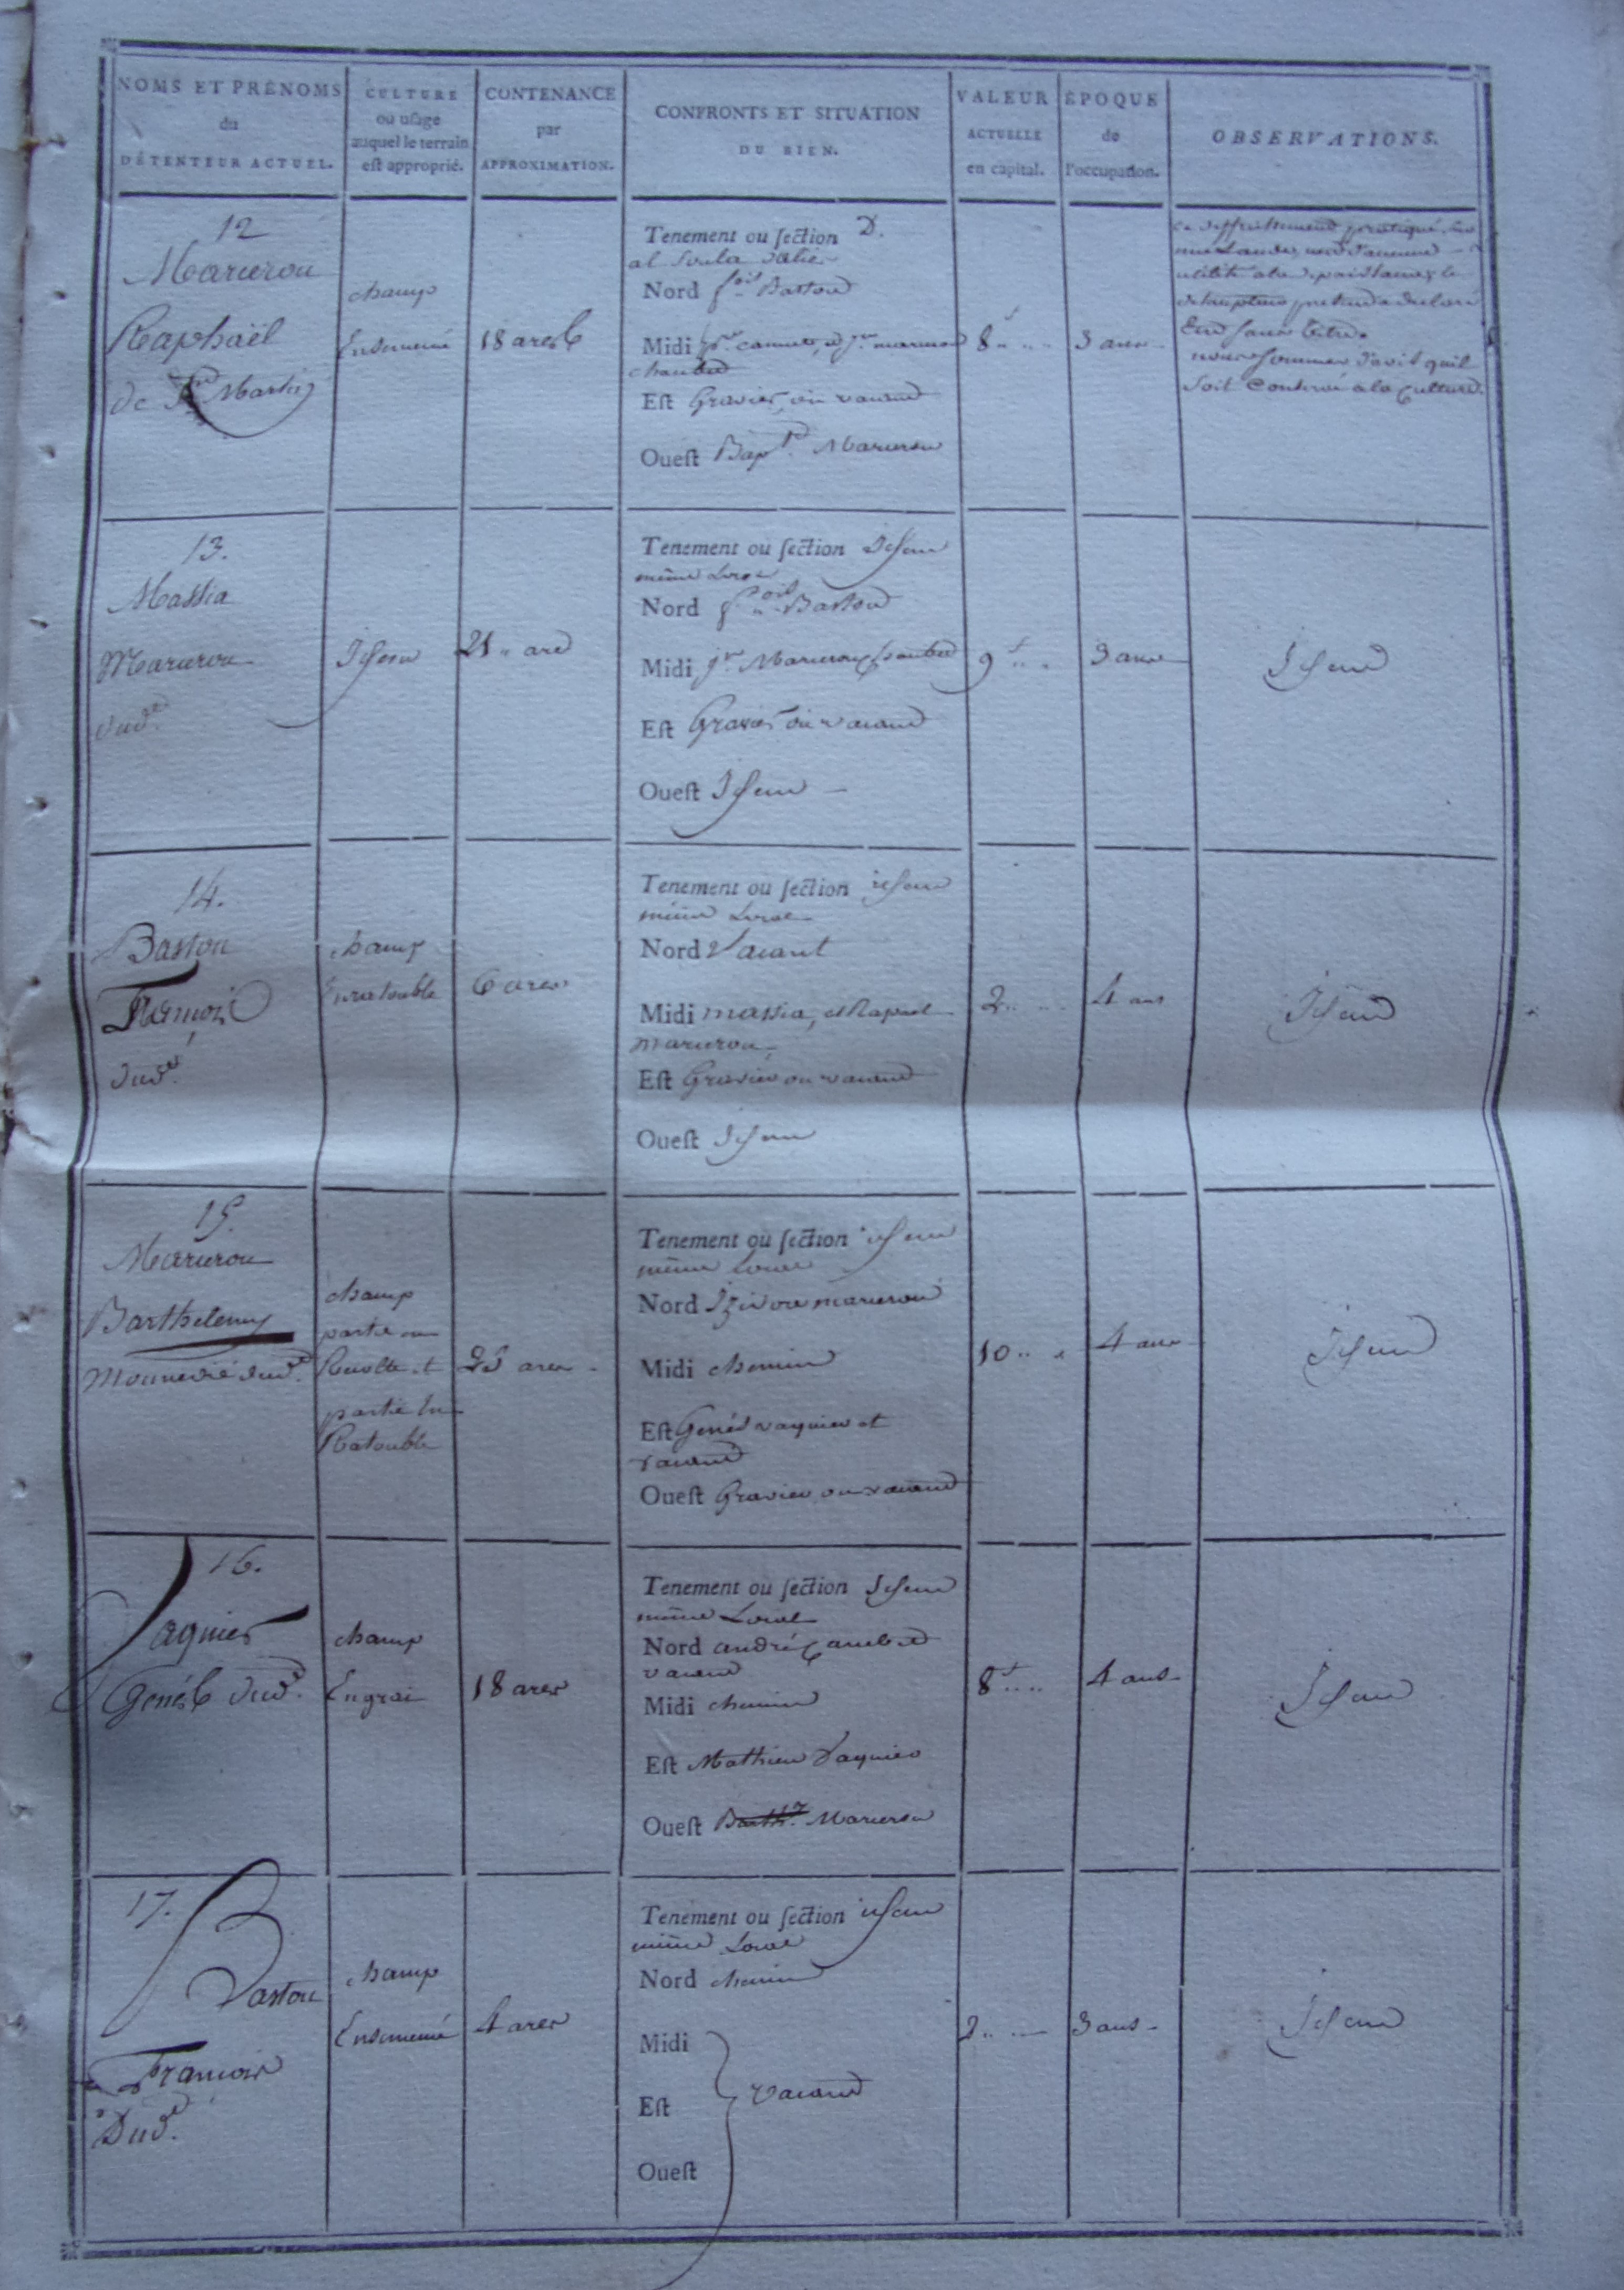 NOMS ET PRÉNOMS
du
DÉTENTEUR ACTUEL.
CULTURE
ou uſage
auquel le terrain
eſt approprié.
CONTENANCE
par
APPROXIMATION.
CONFRONTS ET SITUATION
DU BIEN.
VALEUR
ACTUELLE
en capital.
ÉPOQUE
de
l'occupation.
OBSERVATIONS.
12
Marieron
Raphaël
de St Martin
champ
Ensemencé
18 ares
Tenement ou ſection D.
al Soula
Nord fois Baston
Midi
Eſt Gravier ou vacand
Oueſt Bapt. Marieron
8
3 ans
ce deffrichement pratiqué sur
une Lande,
utilité
declaré
Etre sans titre.
nous sommes d'avis quil
soit conservé a la Culture.
13.
Massia
Marieron
dud.
Idem
21 are
Tenement ou ſection Idem
même Local
Nord fois Baston
Midi Marieron
Eſt Gravier ou vacand
Oueſt Idem
9
3 ans
Idem
14.
Baston
François
dud.
champ
Enratouble
6 ares
Tenement ou ſection idem
même Local
Nord Vacant
Midi massia, et Rapael
marieron
Eſt Gravier ou vacand
Oueſt Idem
2
4 ans
Idem
15.
Marieron
Barthelemy
dud.
champ
partie en
Recolte et
partie En
Ratouble
25 ares
Tenement ou ſection idem
même Local
Nord Izidore marieron
Midi chemin
Eſt Genés vaquier et
vacand
Oueſt Gravier ou vacand
10
4 ans
Idem
16.
Vaquier
Genés dud.
champ
18 ares
Tenement ou ſection Idem
même Local
Nord andré
vacand
Midi chemin
Eſt Mathieu Vaquier
Oueſt Barthy. Marieron
8
4 ans
Idem
17.
Baston
François
Dud.
champ
Ensemencé
4 ares
Tenement ou ſection idem
même Local
Nord chemin
Midi
Eſt vacand
Oueſt
2
3 ans
Idem